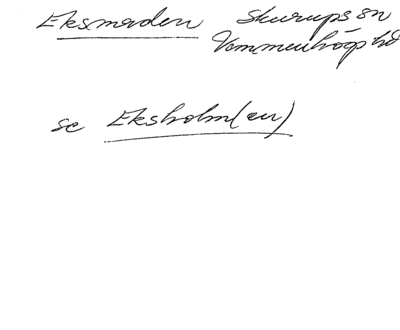 Eksmaden Skurups sn
Vemmenhögs hd
se Eksholm(en)